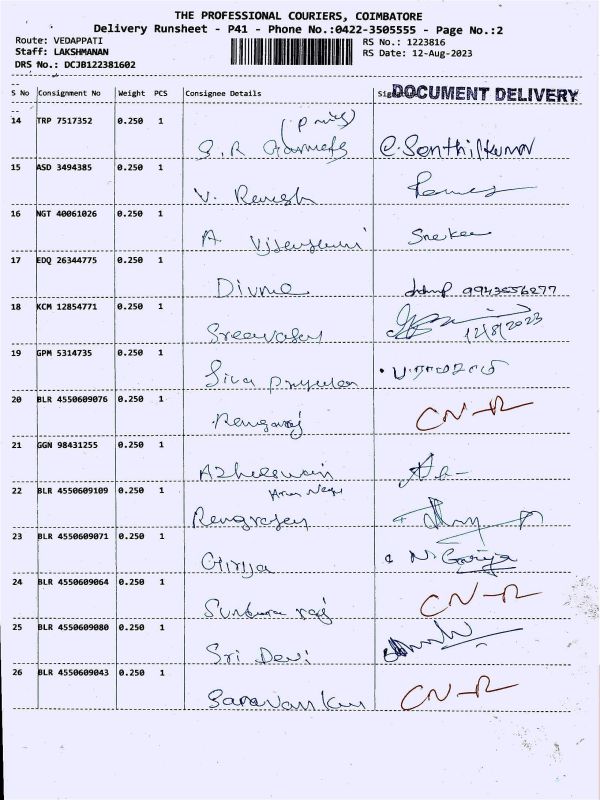 THE PROFESSIONAL COURIERS, COIMBATORE
Delivery Runsheet - P41 - Phone No.:0422-3505555 - Page No.:2
Route: VEDAPPATI
RS No.: 1223816
Staff: LAKSHMANAN
RS Date: 12-Aug-2023
DRS No.: DCJB122381602
S No Consignment No Weight PCS Consignee Details
DOCUMENT DELIVERY
14 TRP 7517352 0.250 1 S. R C. Senthilkumar
15 ASD 3494385 0.250 1 V. Ramesh Ramesh
16 NGT 40061026 0.250 1 A Sneka
17 EDQ 26344775 0.250 1 Divma 9943556277
18 KCM 12854771 0.250 1 12/8/2023
19 GPM 5314735 0.250 1 Siva
20 BLR 4550609076 0.250 1 Rengaraj CN-R
21 GGN 98431255 0.250 1
22 BLR 4550609109 0.250 1
23 BLR 4550609071 0.250 1 Girija N. Girija
24 BLR 4550609064 0.250 1 Sundara raj CN-R
25 BLR 4550609080 0.250 1 Sri Devi
26 BLR 4550609043 0.250 1 CN-R